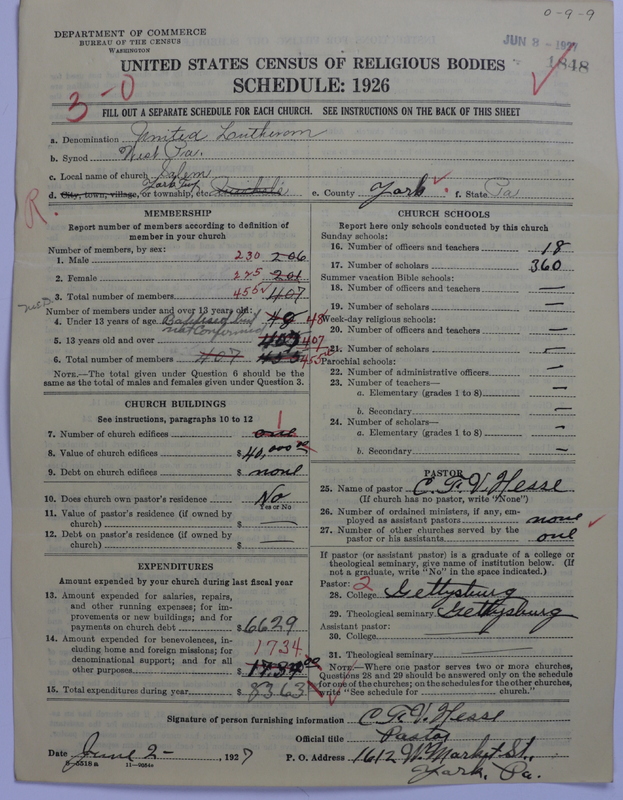 0-9-9
DEPARTMENT OF COMMERCE
BUREAU OF THE CENSUS
WASHINGTON
JUN 3 - 1927
1848
UNITED STATES CENSUS OF RELIGIOUS BODIES
SCHEDULE: 1926
3-0
FILL OUT A SEPARATE SCHEDULE FOR EACH CHURCH. SEE INSTRUCTIONS ON THE BACK OF THIS SHEET
a. Denomination United Lutheran
b. Synod West Pa.
c. Local name of church Salem
d. City, town, village, or township, etc. York Twp. e. County York f. State Pa
R.
MEMBERSHIP
Report number of members according to definition of
member in your church
Number of members, by sex:
1. Male 230 206
2. Female 225 201
3. Total number of members 455 407
Number of members under and over 13 years old:
4. Under 13 years of age Baptised but not Confirmed 48 48
5. 13 years old and over 407 407
6. Total number of members 407 455 455
NOTE.—The total given under Question 6 should be the
same as the total of males and females given under Question 3.
CHURCH BUILDINGS
See instructions, paragraphs 10 to 12
7. Number of church edifices one 1
8. Value of church edifices $ 40,000 00
9. Debt on church edifices $ none
10. Does church own pastor's residence No
Yes or No
11. Value of pastor's residence (if owned by
church) $ —
12. Debt on pastor's residence (if owned by
church) $ —
EXPENDITURES
Amount expended by your church during last fiscal year
13. Amount expended for salaries, repairs,
and other running expenses; for im-
provements or new buildings; and for
payments on church debt $ 6629
14. Amount expended for benevolences, in-
cluding home and foreign missions; for
denominational support; and for all
other purposes 1734
15. Total expenditures during year $ 8363
CHURCH SCHOOLS
Report here only schools conducted by this church
Sunday schools:
16. Number of officers and teachers 18
17. Number of scholars 360
Summer vacation Bible schools:
18. Number of officers and teachers —
19. Number of scholars —
Week-day religious schools:
20. Number of officers and teachers —
21. Number of scholars —
Parochial schools:
22. Number of administrative officers —
23. Number of teachers—
a. Elementary (grades 1 to 8) —
b. Secondary —
24. Number of scholars—
a. Elementary (grades 1 to 8) —
b. Secondary —
PASTOR
25. Name of pastor C. F. V. Hesse
(If church has no pastor, write "None")
26. Number of ordained ministers, if any, em-
ployed as assistant pastors none
27. Number of other churches served by the
pastor or his assistants one
If pastor (or assistant pastor) is a graduate of a college or
theological seminary, give name of institution below. (If
not a graduate, write "No" in the space indicated.)
Pastor: 2
28. College Gettysburg
29. Theological seminary Gettysburg
Assistant pastor:
30. College
31. Theological seminary
NOTE.—Where one pastor serves two or more churches,
Questions 28 and 29 should be answered only on the schedule
for one of the churches; on the schedules for the other churches,
write "See schedule for church."
Signature of person furnishing information C. F. V. Hesse
Official title Pastor
Date June 2 - , 1927 P. O. Address 1612 W. Market St.,
York, Pa.